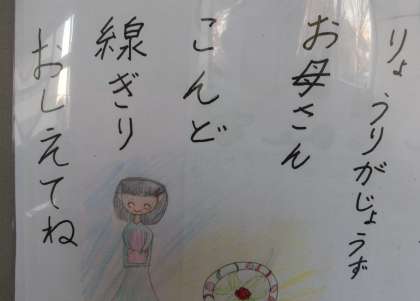 りょうりがじょうず
お母さん
こんど
線ぎり
おしえてね